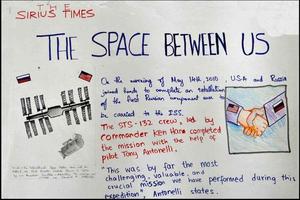 THE
SIRIUS TIMES
THE SPACE BETWEEN US
On the morning of May 14th, 2010, USA and Russia
joined hands to complete an installation
of the first Russian component ever to
be carried to the ISS.
The STS-132 crew, led by
commander Ken Ham completed
the mission with the help of
pilot Tony Antonelli.
"This was by far the most
challenging, valuable, and
crucial mission we have performed during this
expedition", Antonelli states.